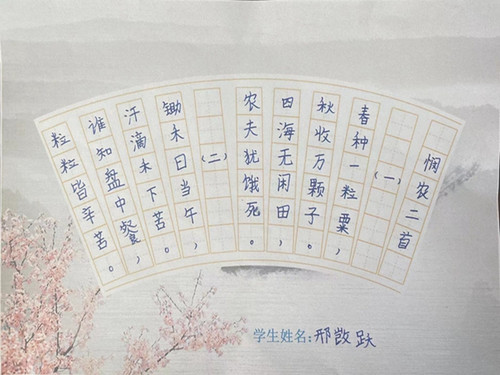 悯农二首
(一)
春种一粒粟，
秋收万颗子。
四海无闲田，
农夫犹饿死。
(二)
锄禾日当午，
汗滴禾下苦。
谁知盘中餐，
粒粒皆辛苦。
学生姓名：邢